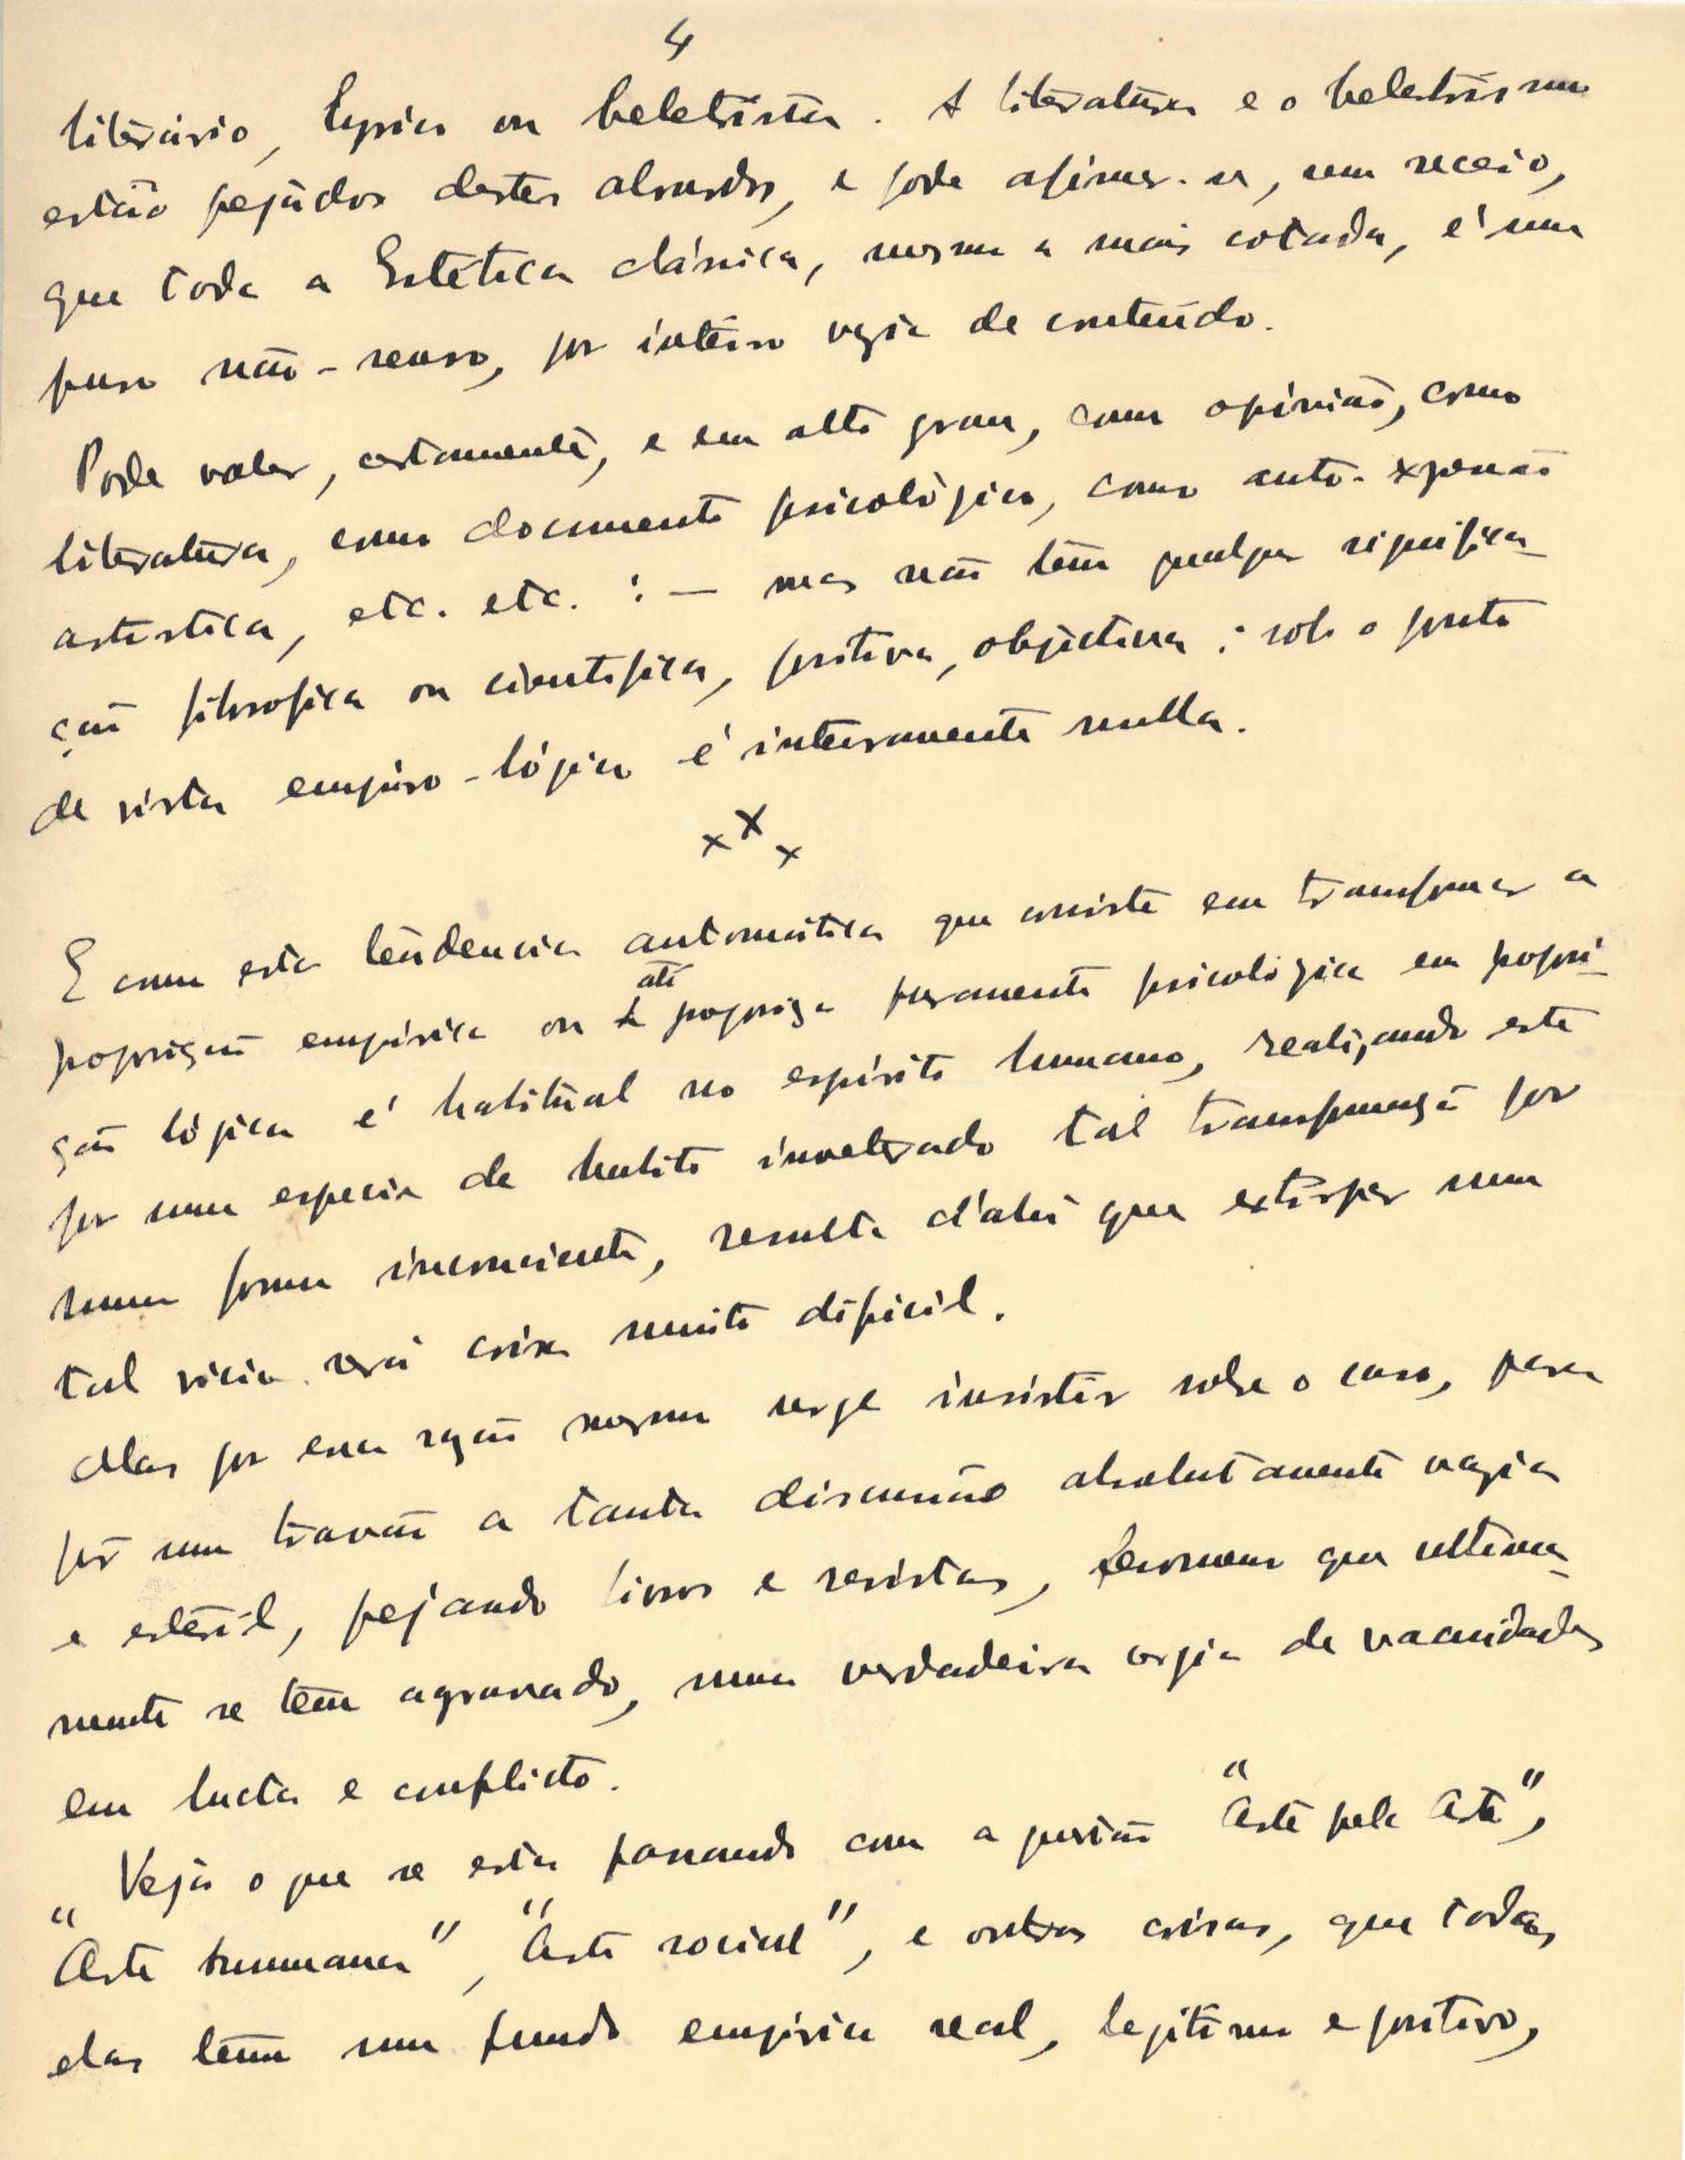 4
literário, lyrico ou beletrista. A literatura e o beletrismo
estão pejados destes absurdos, e pode afirmar-se, sem receio,
que toda a Estética clássica, mesmo a mais cotada, é um
puro não-senso, por inteiro vazia de conteúdo.
Pode valer, certamente, e em alto grau, como opinião, como
literatura, como documento psicológico, como auto-expressão
artistica, etc. etc. : — mas não têm qualquer significa-
ção filosofica ou cientifica, positiva, objectiva : sob o ponto
de vista empiro-lógico é inteiramente nulla.
x X x
E como esta tendencia automática que consiste em transformar a
proposição empirica ou até proposição puramente psicológica em proposi-
ção lógica é habitual no espirito humano, realizando este
por uma especie de habito inveterado tal transformação por
uma forma inconsciente, resulta d'ahi que extirpar um
tal vicio será coisa muito dificil.
Mas por essa razão mesmo urge insistir sobre o caso, para
pôr um travão a tanta discussão absolutamente vazia
e estéril, pejando livros e revistas, fenomeno que ultima-
mente se têm agravado, numa verdadeira orgia de vacuidades
em lucta e conflicto.
Veja o que se esta passando com a questão "Arte pela Arte",
"Arte humana", "Arte social", e outras coisas, que todas
elas têm um fundo empirico real, legitimo e positivo,